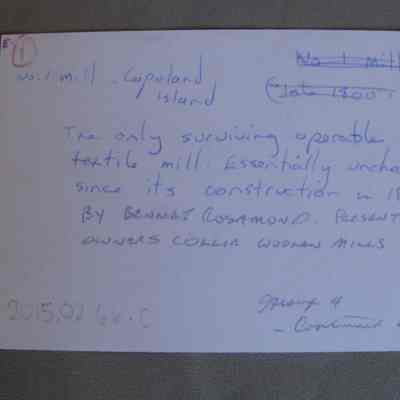 E 1
No. 1 Mill
No. 1 Mill - Copeland
Island
(Late 1800's
The only surviving operable
textile mill. Essentially uncha
since its construction in 18
By Bennet Rosamond. Present
owners Collie Woolen Mills
2015.02 66.C
Group 4
- Continued